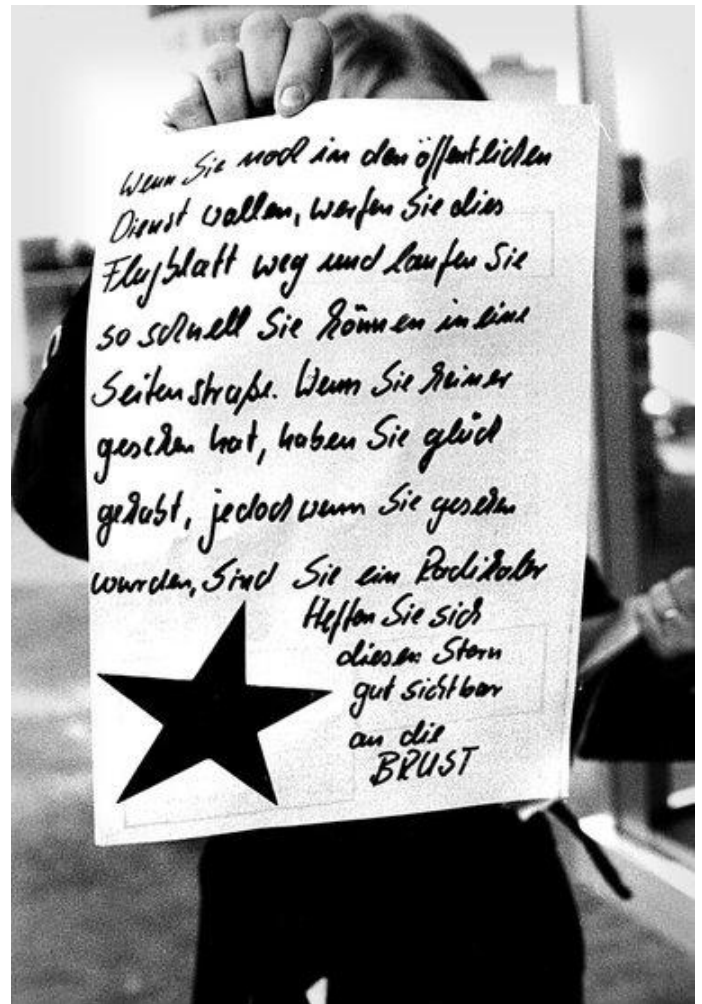 Wenn Sie noch in den öffentlichen
Dienst wollen, werfen Sie dies
Flugblatt weg und laufen Sie
so schnell Sie können in eine
Seitenstraße. Wenn Sie keiner
gesehen hat, haben Sie glück
gehabt, jedoch wenn Sie gesehen
wurden, sind Sie ein Radikaler
Heften Sie sich
diesen Stern
gut sichtbar
an die
BRUST